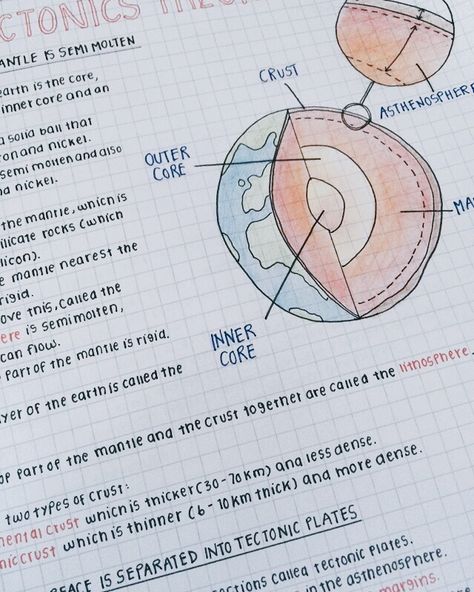 TECTONICS THEORY
MANTLE IS SEMI MOLTEN
earth is the core,
inner core and an
a solid ball that
iron and nickel.
semi molten and also
nd nickel.
the mantle, which is
silicate rocks (which
silicon).
e mantle nearest the
rigid.
ove this, called the
ere is semi molten,
can flow.
part of the mantle is rigid.
yer of the earth is called the
op part of the mantle and the crust together are called the lithosphere.
two types of crust:
nental crust which is thicker (30-70km) and less dense.
nic crust which is thinner (6-10km thick) and more dense.
RFACE IS SEPARATED INTO TECTONIC PLATES
ections called tectonic plates.
in the asthenosphere.
margins.
CRUST
ASTHENOSPHERE
OUTER
CORE
MA
INNER
CORE